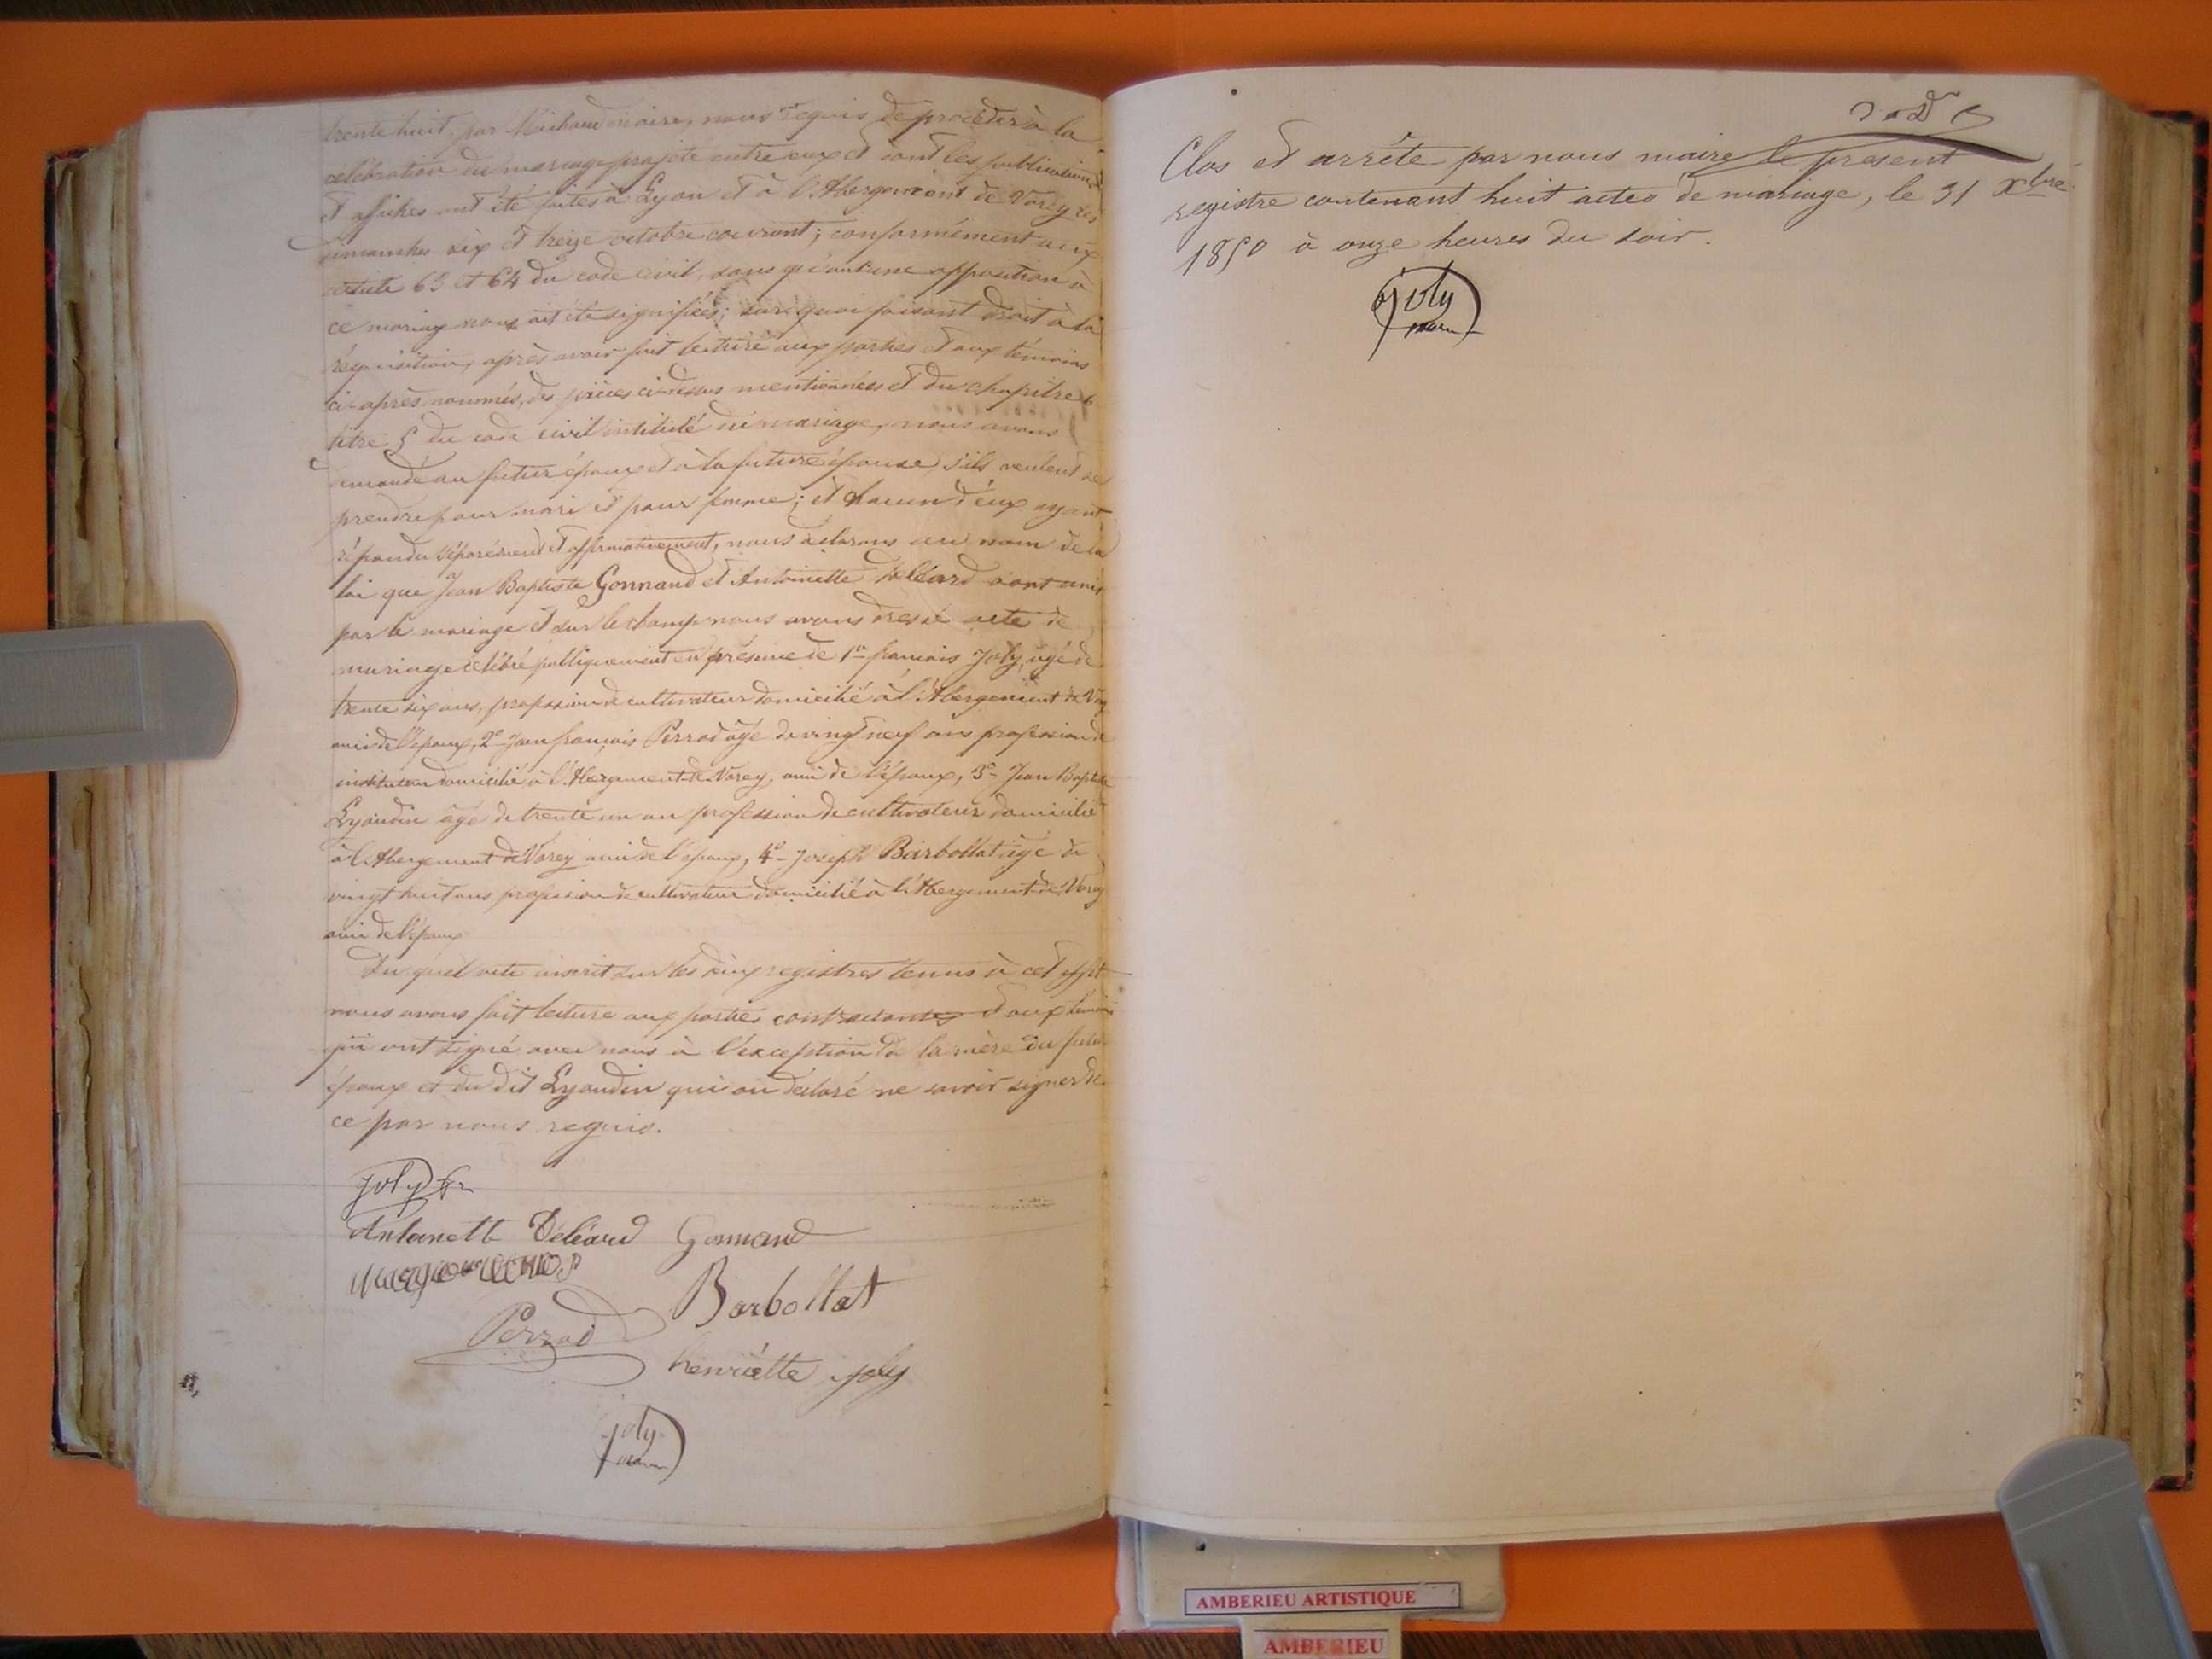 trente huit, par Michaud maire, nous requis de procéder à la
célébration du mariage projeté entre eux et dont les publications
et affiches ont été faites à Lyon et à l'Abergement de Varey les
dimanches six et treize octobre courant; conformément aux
article 63 et 64 du code civil, sans qu'aucune opposition à
ce mariage nous ait été signifiée; sur quoi faisant droit à la
réquisition, après avoir fait lecture aux parties et aux témoins
ci-après nommés, des pièces ci-dessus mentionnées et du chapitre 6
titre 5 du code civil intitulé du mariage, nous avons
demandé au futur époux et à la future épouse, s'ils veulent se
prendre pour mari et pour femme; et chacun d'eux ayant
répondu séparément et affirmativement, nous déclarons au nom de la
loi que Jean Baptiste Gonnand et Antoinette Deléard sont unis
par le mariage et sur le champ nous avons dressé acte de
mariage célébré publiquement en présence de 1er françois Joly, âgé de
trente six ans, profession de cultivateur domicilié à l'Abergement de Varey
ami de l'époux, 2e Jean françois Perrad âgé de vingt neuf ans profession de
instituteur domicilié à l'Abergement de Varey, ami de l'époux, 3e Jean Baptiste
Lyaudin âgé de trente un an profession de cultivateur domicilié
à l'Abergement de Varey ami de l'époux, 4e Joseph Barbollat âgé de
vingt huit ans profession de cultivateur domicilié à l'Abergement de Varey
ami de l'époux
Du quel acte inscrit sur les deux registres tenus à cet effet
nous avons fait lecture aux parties contractantes et aux témoins
qui ont signé avec nous à l'exception de la mère du futur
époux et du dit Lyaudin qui on déclaré ne savoir signer de
ce par nous requis.
Joly fr
Antoinette Déléard Gonnand
Barbollat
Perrad
henriette joly
Joly
maire
Clos et arrêté par nous maire le présent
registre contenant huit actes de mariage, le 31 Xbre
1850 à onze heures du soir.
Joly
maire
AMBERIEU ARTISTIQUE
AMBERIEU